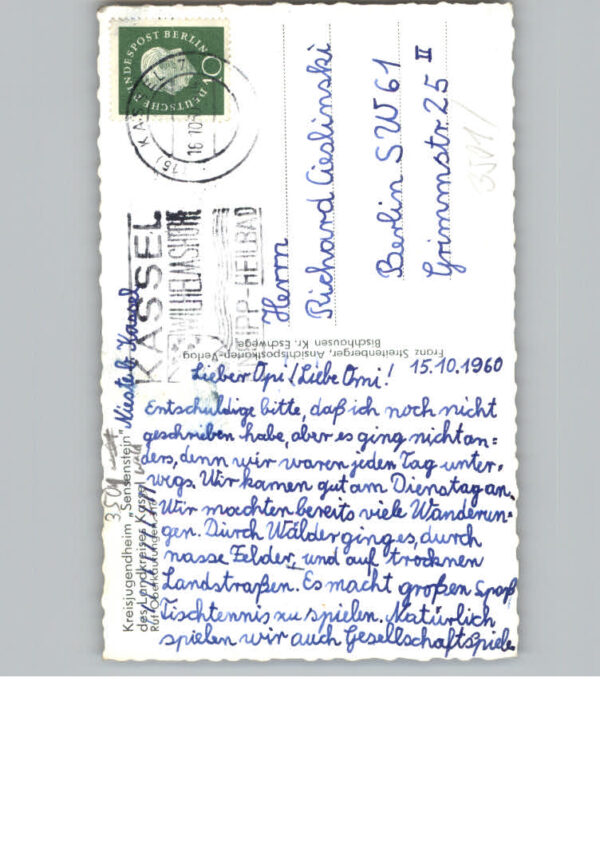 DEUTSCHE BUNDESPOST BERLIN
10
KASSEL 7
KASSEL
WILHELMSHÖHE
KNEIPP-HEILBAD
Herrn
Richard Cieslinski
Berlin SW 61
Grimmstr. 25 II
Franz Streitenberger, Ansichtspostkarten-Verlag
Bischhausen Kr. Eschwege
Kreisjugendheim „Sensenstein"
des Landkreises Kassel
Ruf Oberkaufungen
Niestetal Kassel
Lieber Opi! Liebe Omi! 15.10.1960
Entschuldige bitte, daß ich noch nicht
geschrieben habe, aber es ging nicht an=
ders, denn wir waren jeden Tag unter=
wegs. Wir kamen gut am Dienstag an.
Wir machten bereits viele Wanderun=
gen. Durch Wälder ging es, durch
nasse Felder, und auf trocknen
Landstraßen. Es macht großen Spaß
Tischtennis zu spielen. Natürlich
spielen wir auch Gesellschaftspiele